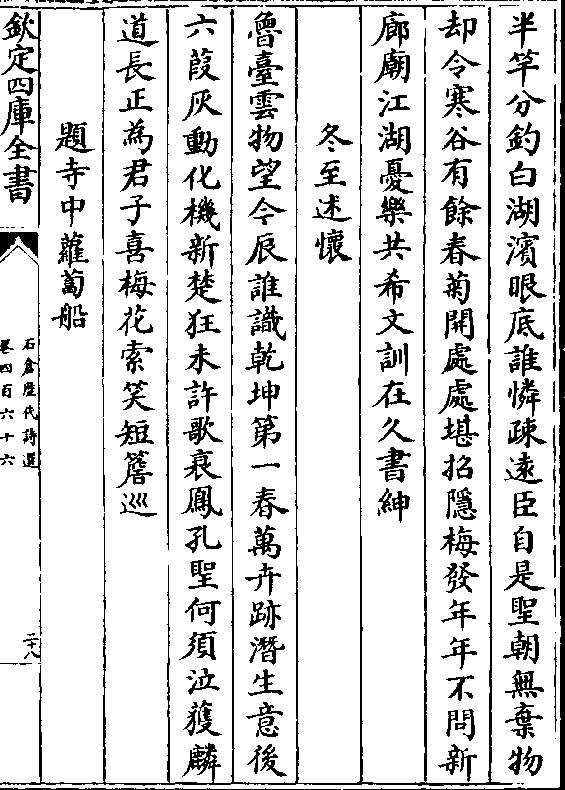 半竿分釣白湖濱眼底誰憐疎遠臣自是聖朝無棄物
却令寒谷有餘春菊開處處堪招隱梅發年年不問新
廊廟江湖憂樂共希文訓在久書紳
冬至述懷
魯臺雲物望今辰誰識乾坤第一春萬卉跡潛生意後
六葭灰動化機新楚狂未許歌衰鳳孔聖何須泣獲麟
道長正為君子喜梅花索笑短簷巡
題寺中蘿蔔船
欽定四庫全書
石倉歷代詩選
卷四百六十六
二十八